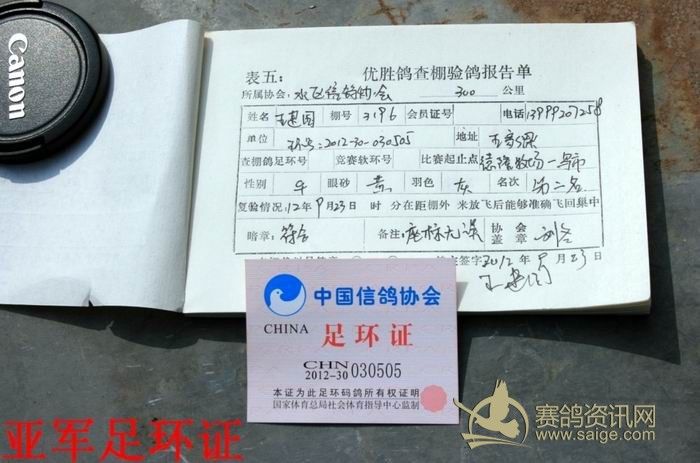 Canon
表五： 优胜鸽查棚验鸽报告单
所属协会：水飞信鸽协会 300 公里
姓名 王建国 棚号 3196 会员证号 电话 13999207258
单位 环号：2012-30-030505 地址
查棚鸽足环号 竞赛软环号 比赛起止点 牧场一号市
性别 牛 眼砂 黄 羽色 灰 名次 第二名
复验情况：12年9月23日 时 分在距棚外 米放飞后能够准确飞回巢中
暗章：符合 备注：座标无误 协会盖章
签字 2012年9月23日
王建国
中国信鸽协会
CHINA 足环证
CHN
2012-30 030505
本证为此足环码鸽所有权证明
国家体育总局社会体育指导中心监制
亚军足环证
赛鸽资讯网
www.saige.com